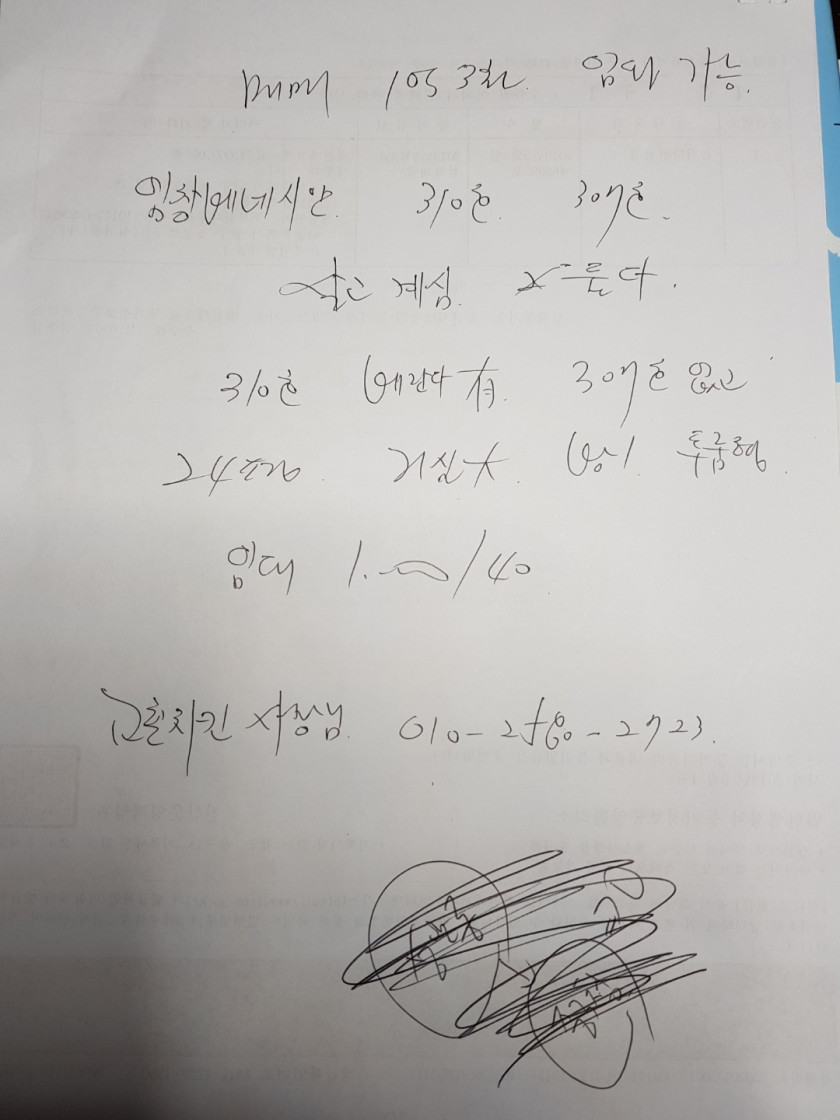 매매 1억 3천. 임대 가능.
임창베네시안. 310호. 307호.
살고 계심.
310호 베란다 有. 307호 없고
24평형. 거실大. 방1 투룸형.
임대 1.000/40
교촌치킨 사장님. 010-2580-2723.